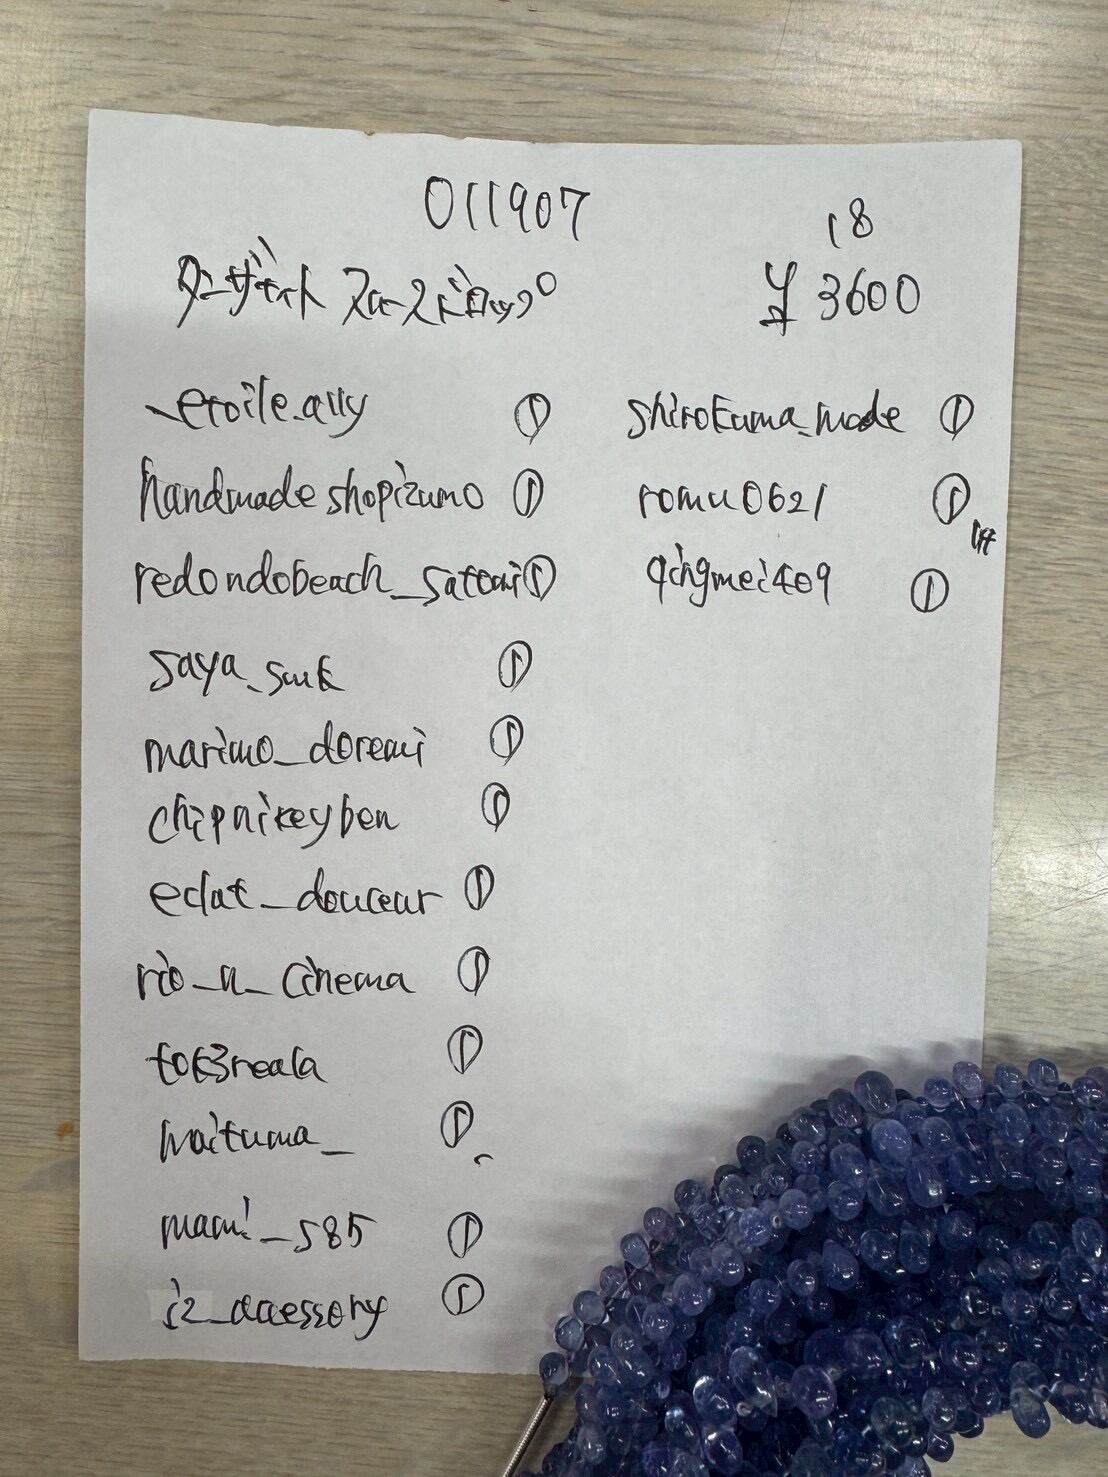 011907
18
タンザナイト スムースドロップ
¥3600
_etoile.ally ①
handmadeshopizumo ①
redondobeach_satomi ①
saya_smk ①
marimo_doremi ①
chipnikeyben ①
eclat_douceur ①
rio_n_cinema ①
tok3reala ①
waituma_ ①
mami_s85 ①
iz_accessory ①
shirokuma_mode ①
romu0621 ①
qingmei409 ①